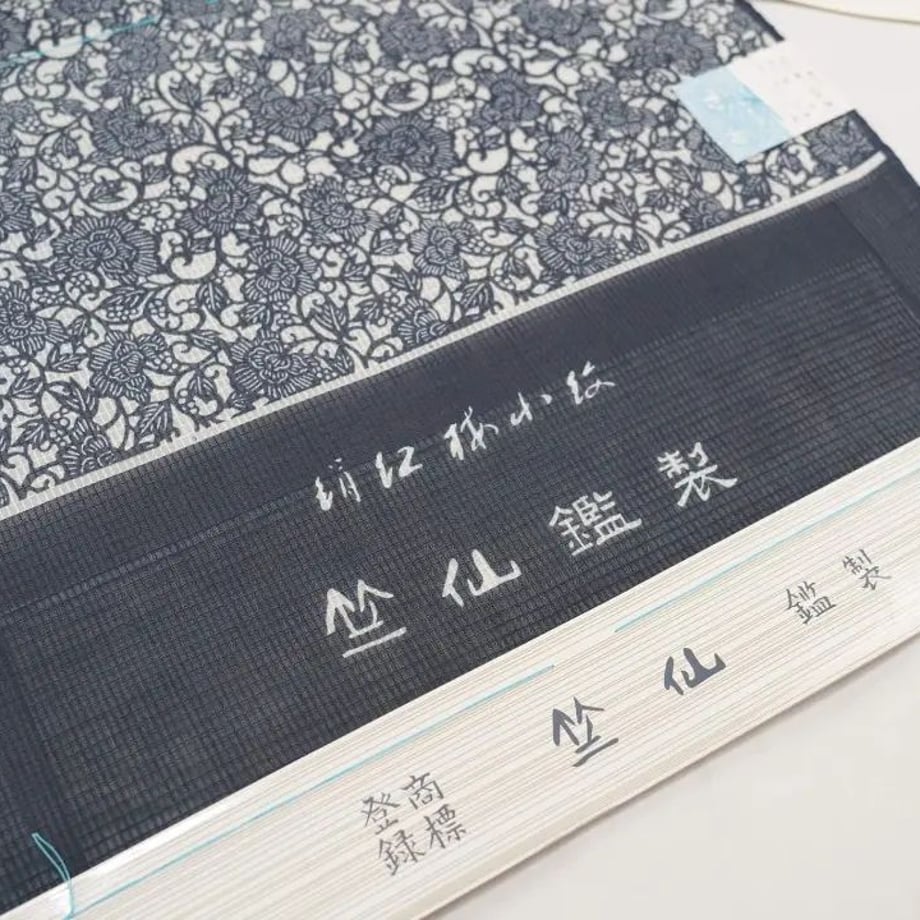 絹紅梅小紋
竺仙鑑製
竺仙 鑑製
商標
登録